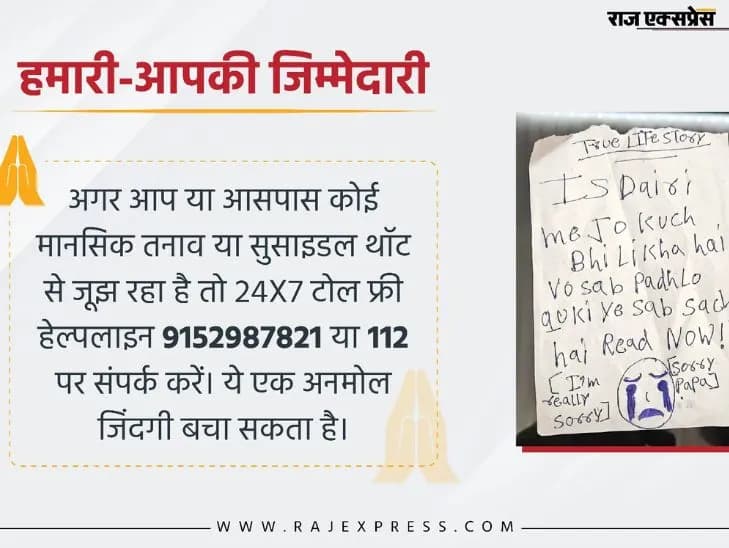 राज एक्सप्रेस
हमारी-आपकी जिम्मेदारी
अगर आप या आसपास कोई
मानसिक तनाव या सुसाइडल थॉट
से जूझ रहा है तो 24X7 टोल फ्री
हेल्पलाइन 9152987821 या 112
पर संपर्क करें। ये एक अनमोल
जिंदगी बचा सकता है।
True LIFE Story
IS Dairi
me Jo kuch
Bhi Likha hai
Vo sab Padhlo
quki ye sab sach
hai Read NOW!
[I'm
really
sorry]
[sorry
Papa]
WWW.RAJEXPRESS.COM